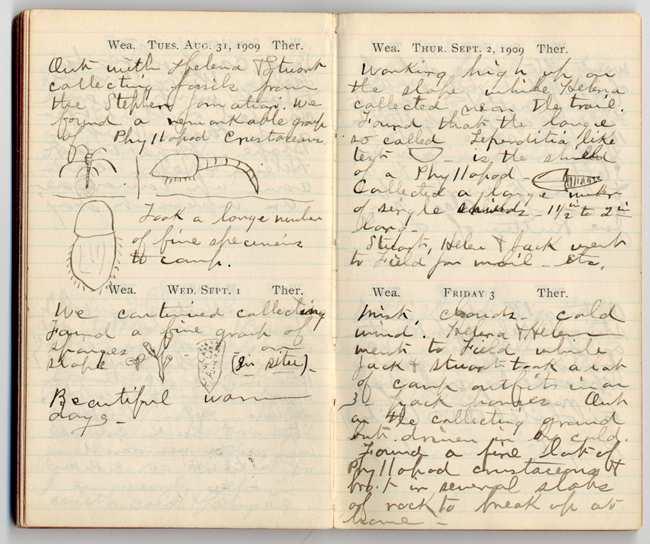 Wea. TUES. AUG. 31, 1909 Ther.
Out with Helena & Stuart
collecting fossils from
the Stephen formation. We
found a remarkable group
of Phyllopod Crustaceans
Took a large number
of fine specimens
to camp.
Wea. WED. SEPT. 1 Ther.
We continued collecting
found a fine group of
sponges on
slope (in situ)_
Beautiful warm
days_
Wea. THUR. SEPT. 2, 1909 Ther.
Working high up on
the slope while Helena
collected near the trail.
Found that the large
so called Leperditia like
test _ is the shield
of a Phyllopod_
Collected a large number
of single shields_ 1 1/2 in to 2 in
long_
Stuart, Helen & Jack went
to Field for mail_ etc.
Wea. FRIDAY 3 Ther.
Mist, clouds_ cold
wind. Helena & Helen
went to Field while
Jack & Stuart took a lot
of camp outfit in on
3 pack horses. Out
on the collecting ground
but driven in by cold.
Found a fine lot of
Phyllopod crustaceans &
bro't in several slabs
of rock to break up at
home_